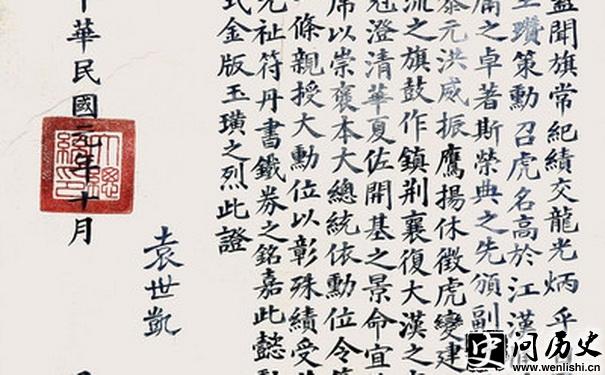 蓋聞旂常紀績交龍光炳乎
瓚策勳召虎名高於江漢
庸之卓著斯榮典之先頒副
黎元洪威振鷹揚休徵虎變建
流之旗鼓作鎮荆襄復大漢之
冠澄清華夏佐開基之景命宜
席以崇褒本大總統依勳位令第
條親授大勳位以彰殊績受
元祉符丹書鐵券之銘嘉此懿
式金版玉璜之烈此證
袁世凱
中華民國元年十月
问历史
www.wenlishi.cn